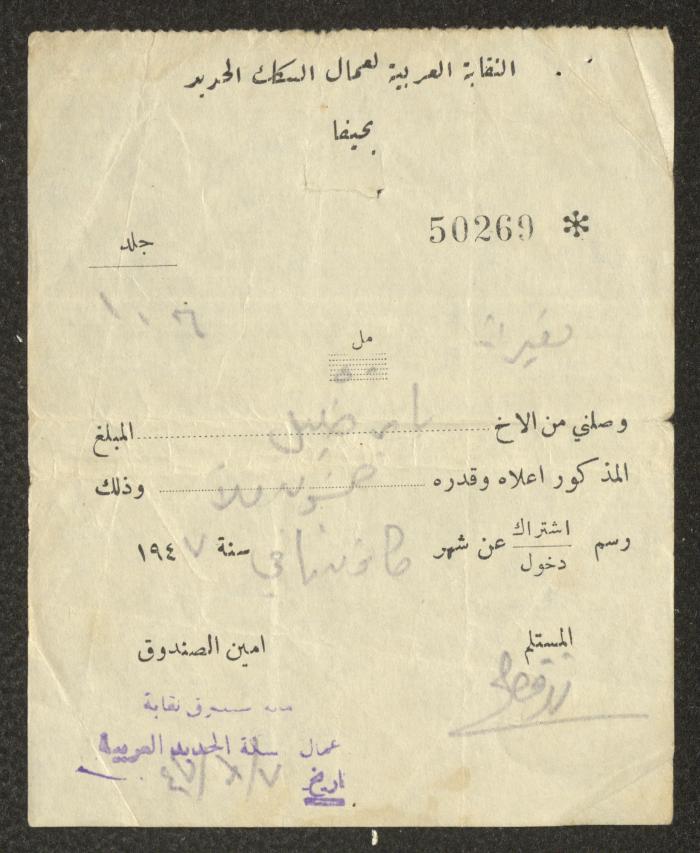 النقابة العربية لعمال السكك الحديد
بحيفا
50269 *
جلد
مل
وصلني من الاخ المبلغ
المذكور اعلاه وقدره خمسون ملا وذلك
رسم اشتراك دخول عن شهر كانون ثاني سنة ١٩٤٧
المستلم امين الصندوق
نقابة
عمال سكة الحديد العربية
تاريخ